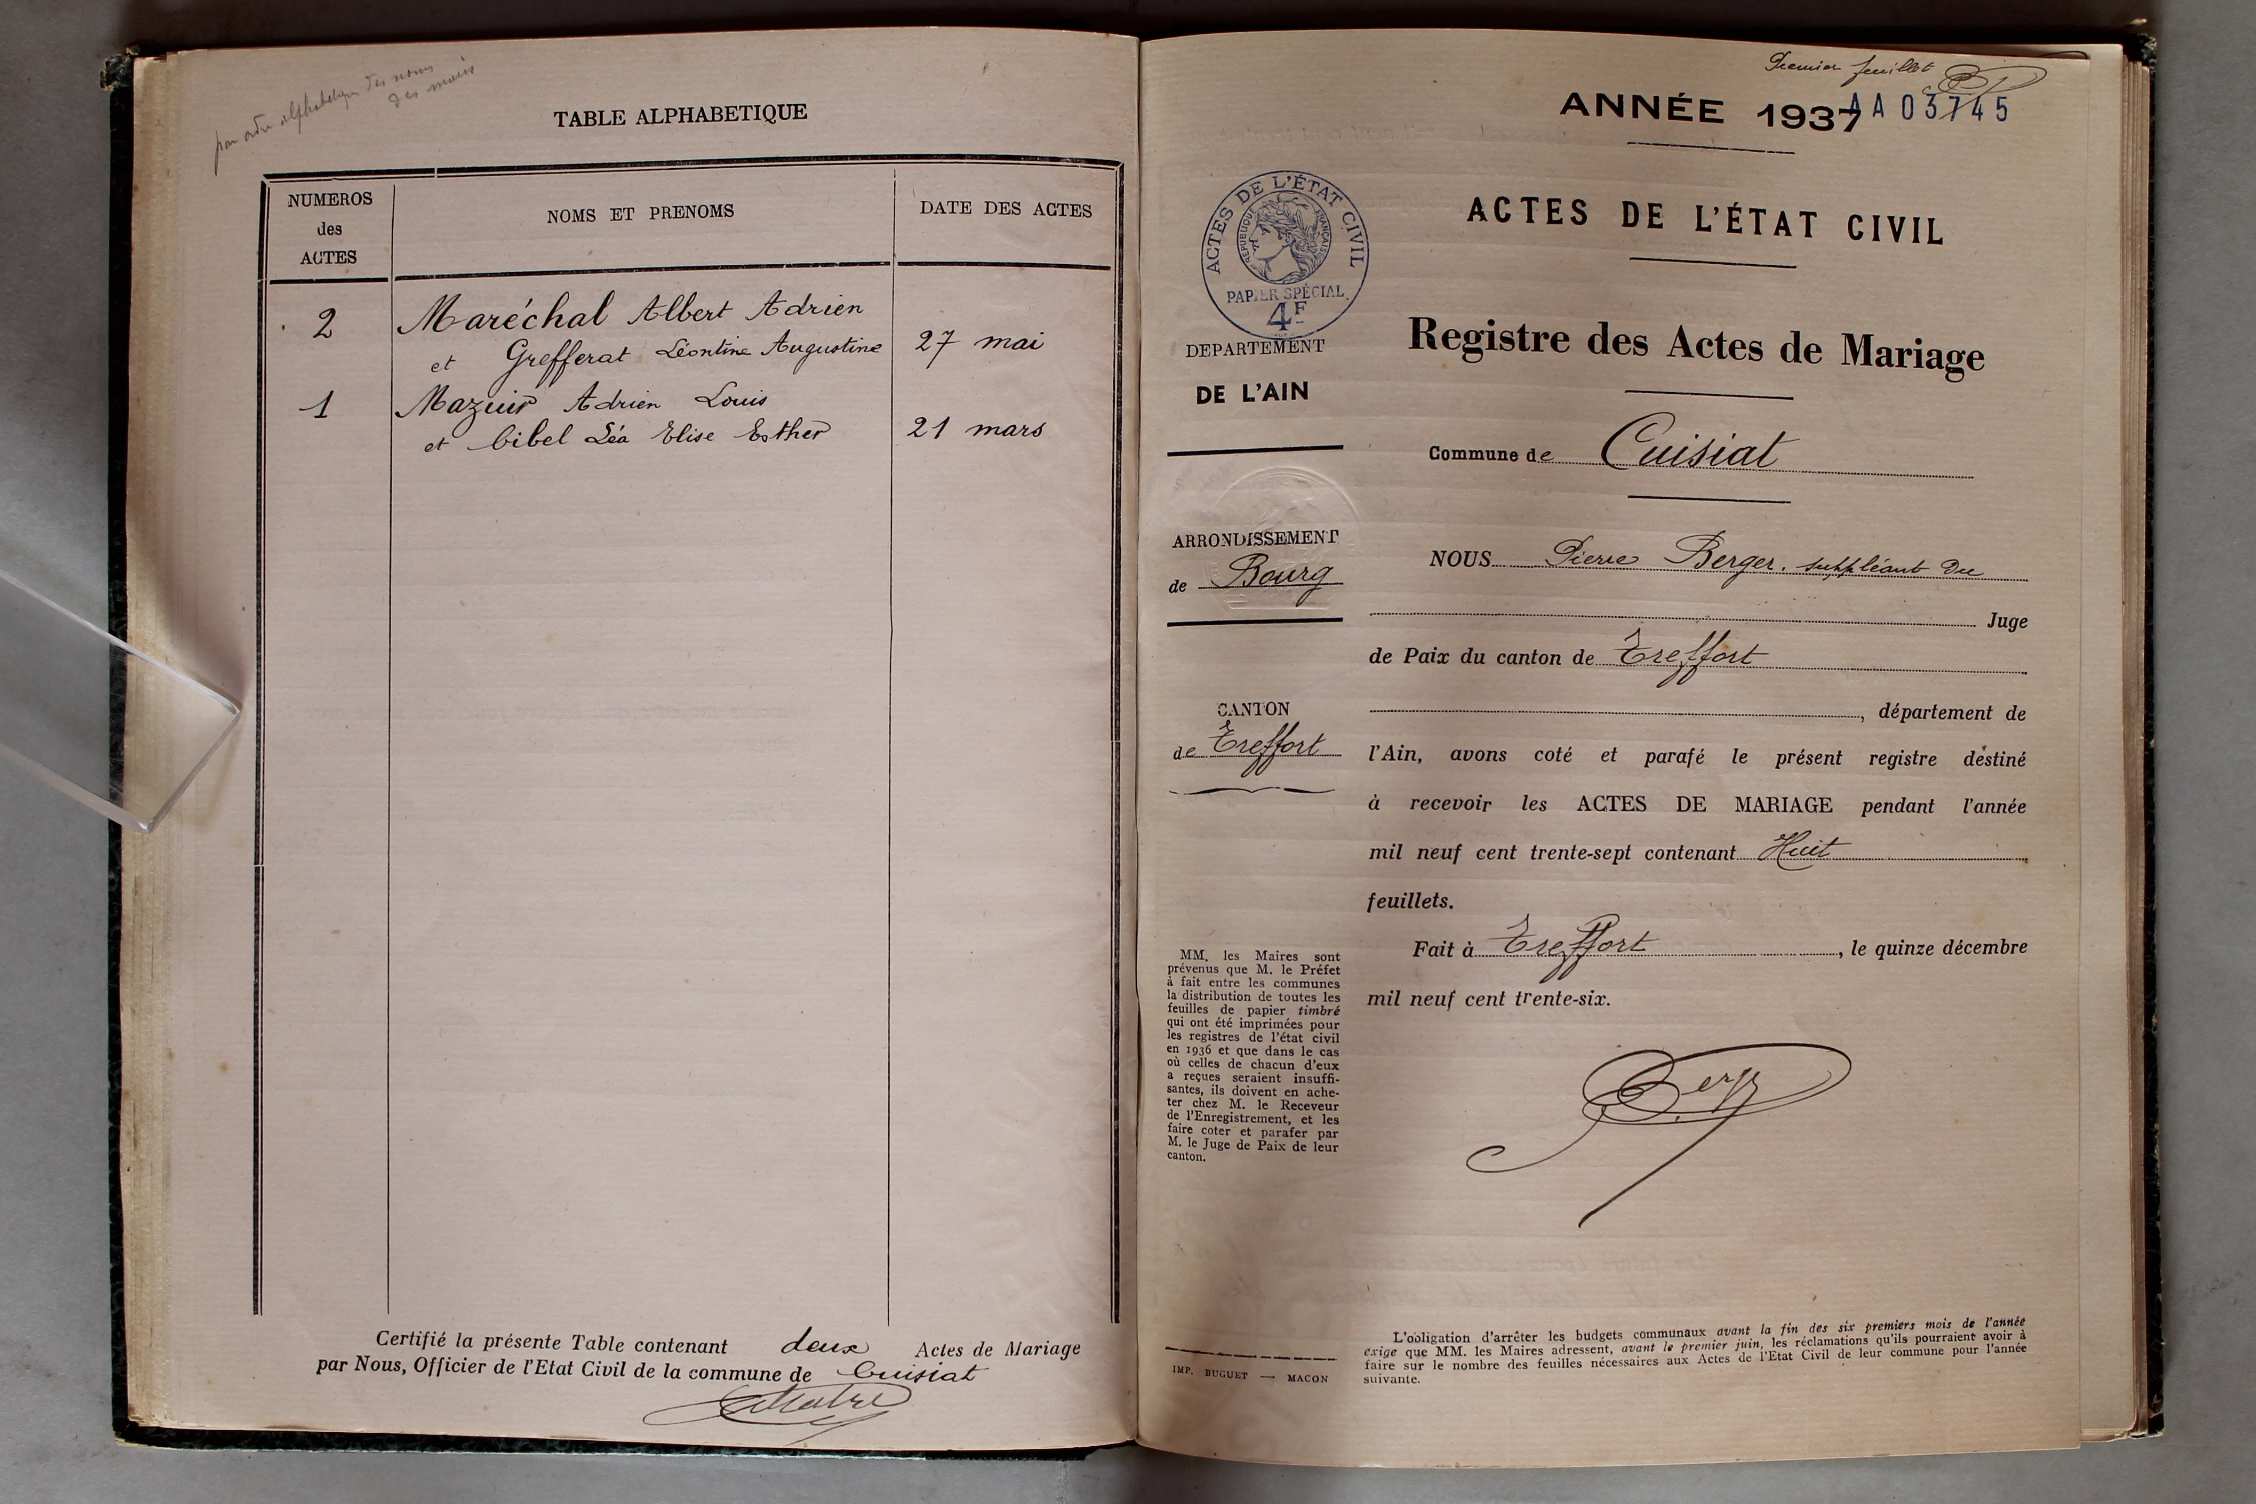 par ordre alphabetique des noms
des maris
TABLE ALPHABETIQUE
NUMEROS
des
ACTES
NOMS ET PRENOMS
DATE DES ACTES
2
Maréchal Albert Adrien
et Grefferat Léontine Augustine
27 mai
1
Mazuir Adrien Louis
et Cibel Léa Elise Esther
21 mars
Certifié la présente Table contenant deux Actes de Mariage
par Nous, Officier de l'Etat Civil de la commune de Cuisiat
Premier feuillet
ANNÉE 1937
AA 03745
ACTES DE L'ÉTAT CIVIL
ACTES DE L'ÉTAT CIVIL
REPUBLIQUE FRANÇAISE
PAPIER SPÉCIAL
4F
DEPARTEMENT
DE L'AIN
Registre des Actes de Mariage
Commune de Cuisiat
ARRONDISSEMENT
de Bourg
NOUS Pierre Berger. suppléant du
Juge
de Paix du canton de Treffort
CANTON
de Treffort
, département de
l'Ain, avons coté et parafé le présent registre destiné
à recevoir les ACTES DE MARIAGE pendant l'année
mil neuf cent trente-sept contenant Huit
feuillets.
Fait à Treffort, le quinze décembre
mil neuf cent trente-six.
MM. les Maires sont
prévenus que M. le Préfet
à fait entre les communes
la distribution de toutes les
feuilles de papier timbré
qui ont été imprimées pour
les registres de l'état civil
en 1936 et que dans le cas
où celles de chacun d'eux
a reçues seraient insuffi-
santes, ils doivent en ache-
ter chez M. le Receveur
de l'Enregistrement, et les
faire coter et parafer par
M. le Juge de Paix de leur
canton.
IMP. BUGUET — MACON
L'obligation d'arrêter les budgets communaux avant la fin des six premiers mois de l'année
exige que MM. les Maires adressent, avant le premier juin, les réclamations qu'ils pourraient avoir à
faire sur le nombre des feuilles nécessaires aux Actes de l'Etat Civil de leur commune pour l'année
suivante.